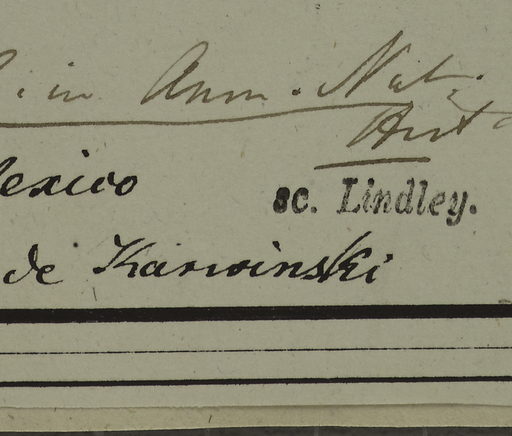 in Ann. Nat.
Hist
exico
sc. Lindley.
de Karwinski